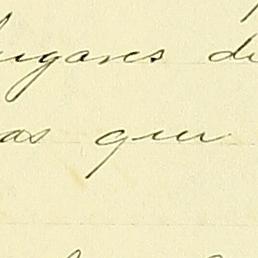 lugares de
as que